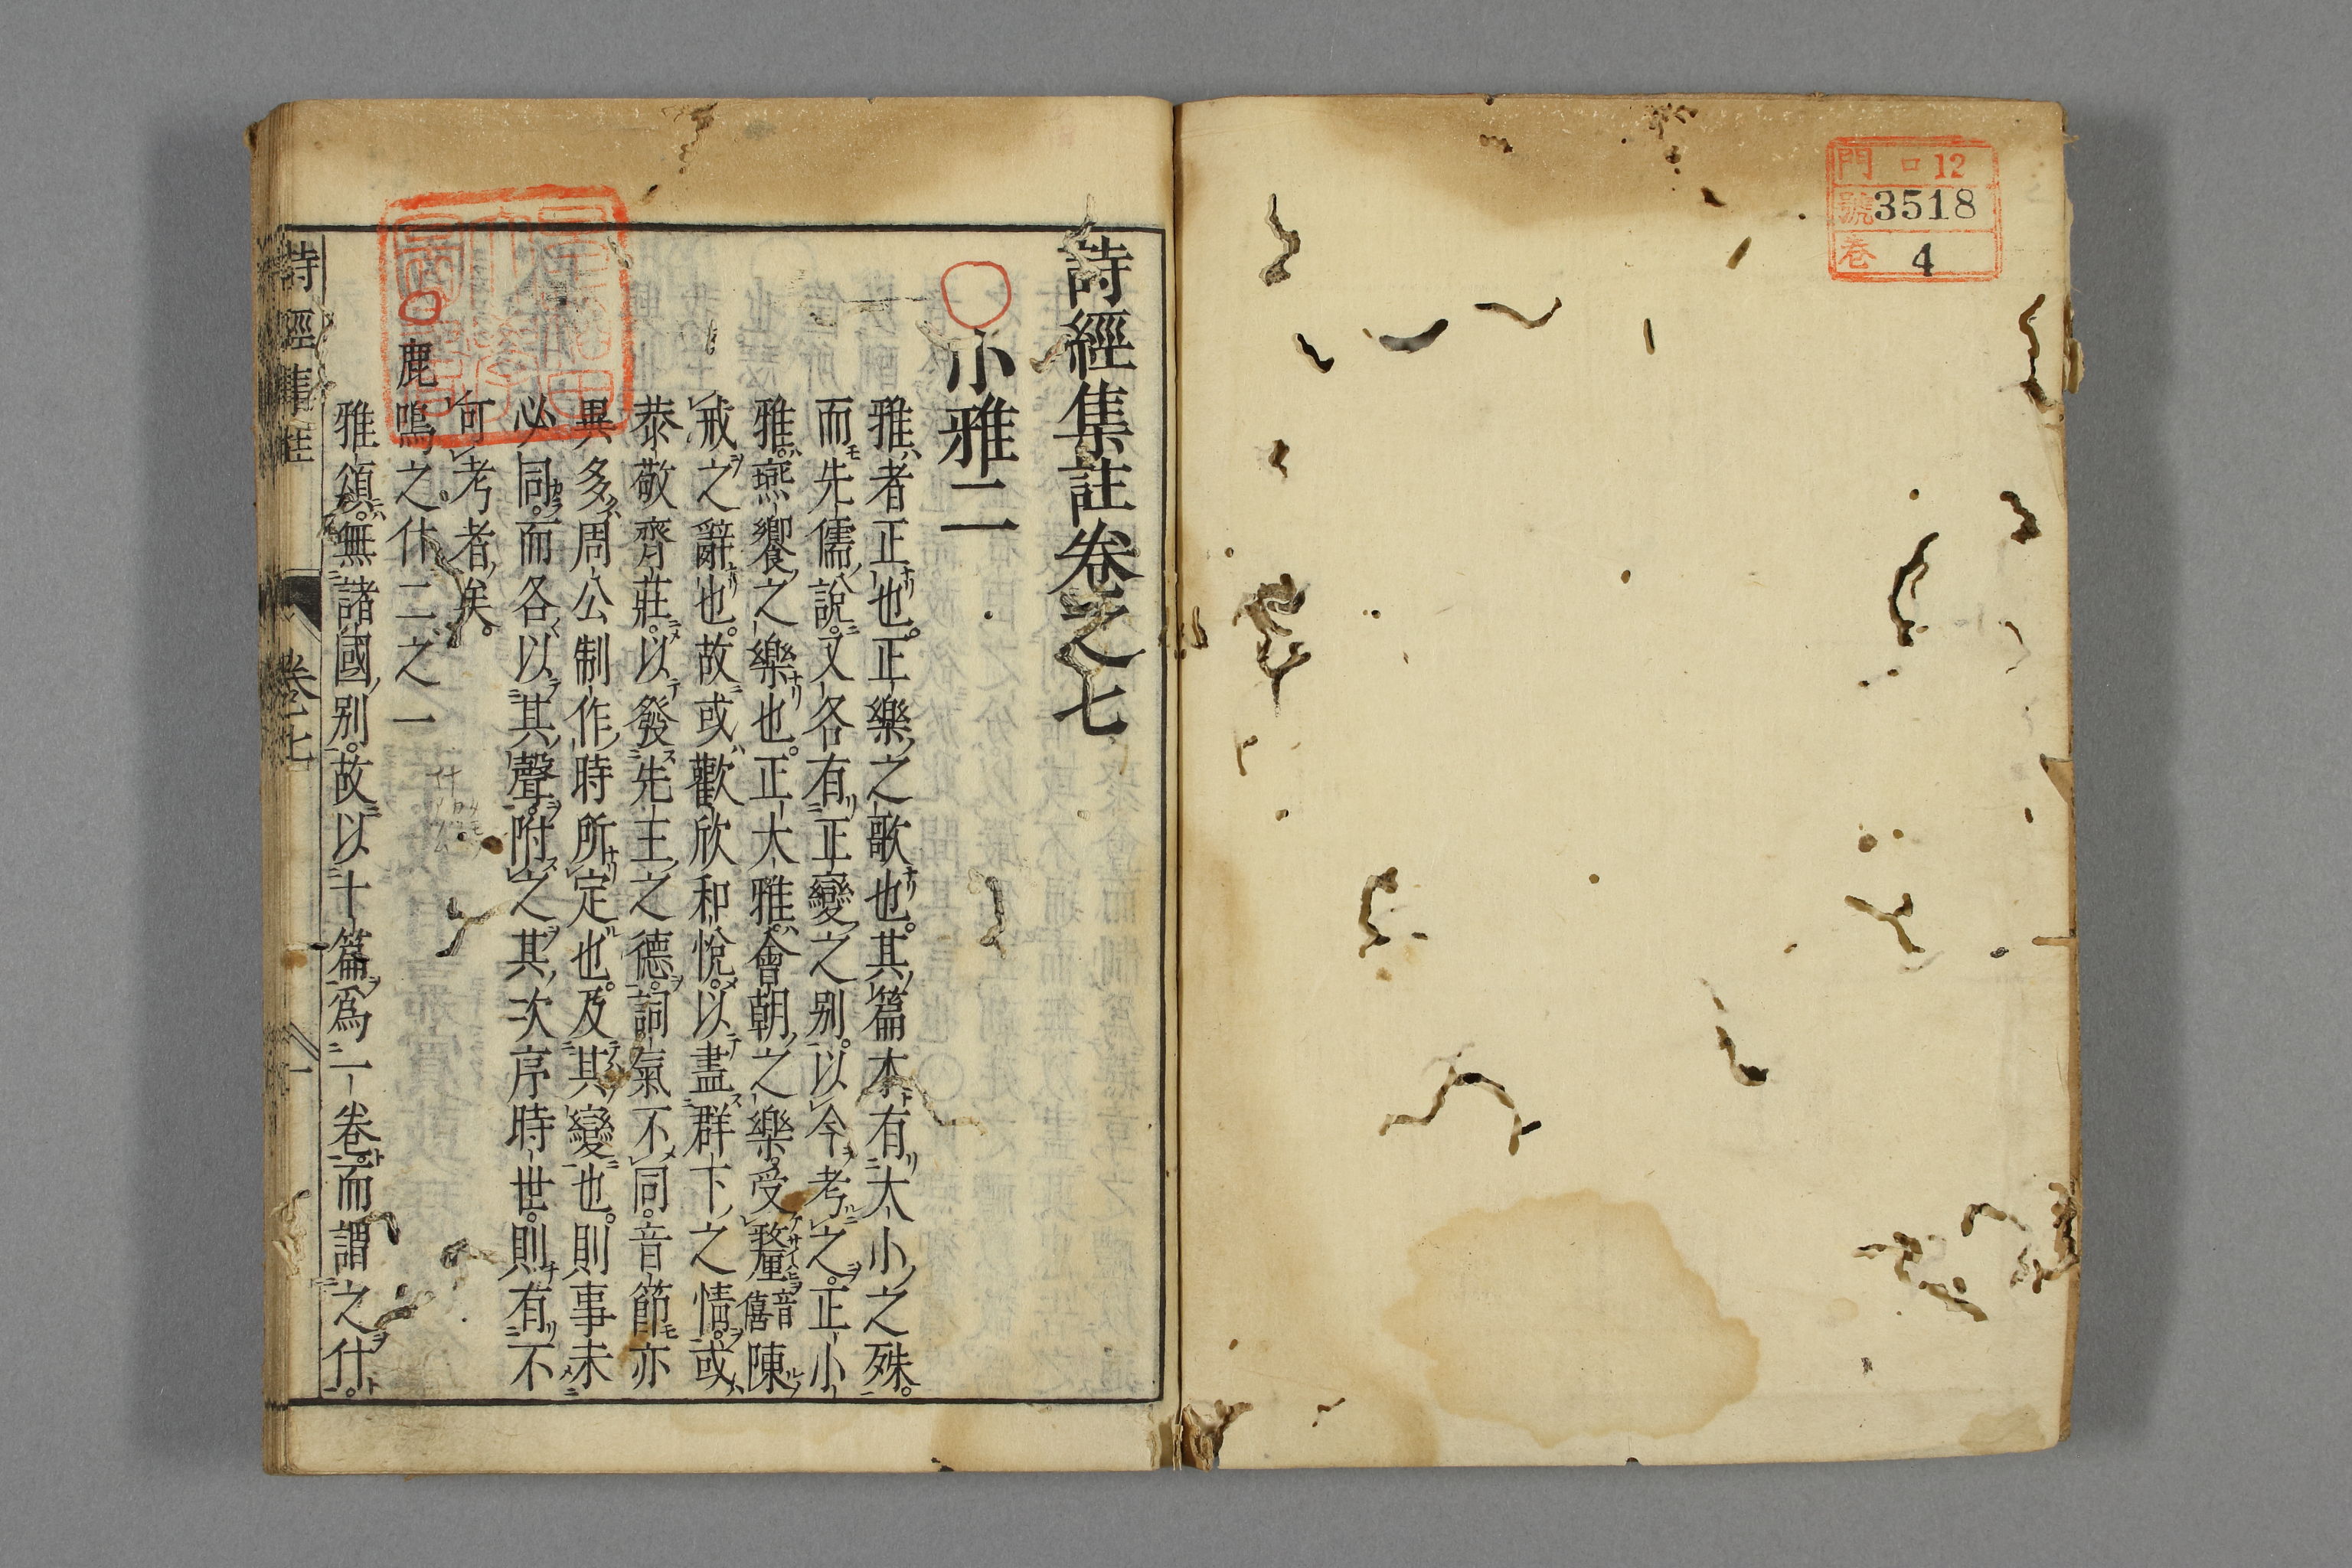 門 口12
號 3518
卷 4
詩經集註卷之七
小雅二
雅者正也。正樂之歌也。其篇本有大小之殊。
而先儒說。又各有正變之別。以今考之。正小
雅。燕饗之樂也。正大雅。會朝之樂。受釐音僖陳
戒之辭也。故或歡欣和悅。以盡群下之情。或
恭敬齊莊。以發先王之德。詞氣不同。音節亦
異多周公制作時所定也。及其變也。則事未
必同。而各以其聲。附之其次序時世。則有不
可考者矣。
鹿鳴之什二之一
雅頌。無諸國別。故以十篇為一卷。而謂之什。
詩經集註 卷七 一